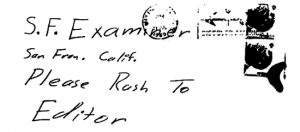 S.F. Examiner
San Fran. Calif.
Please Rush To
Editor